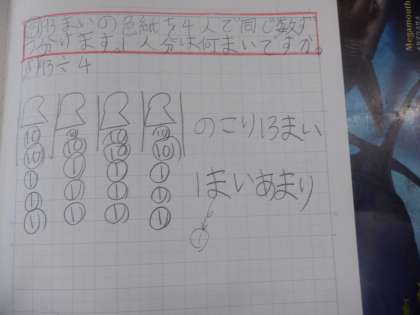 93まいの色紙を4人で同じ数ず
つ分けます。1人分は何まいですか。
93÷4
10 10 10 10
10 10 10 10
1 1 1 1
1 1 1 1
1 1 1 1
のこり13まい
1まいあまり
1
Megamouth